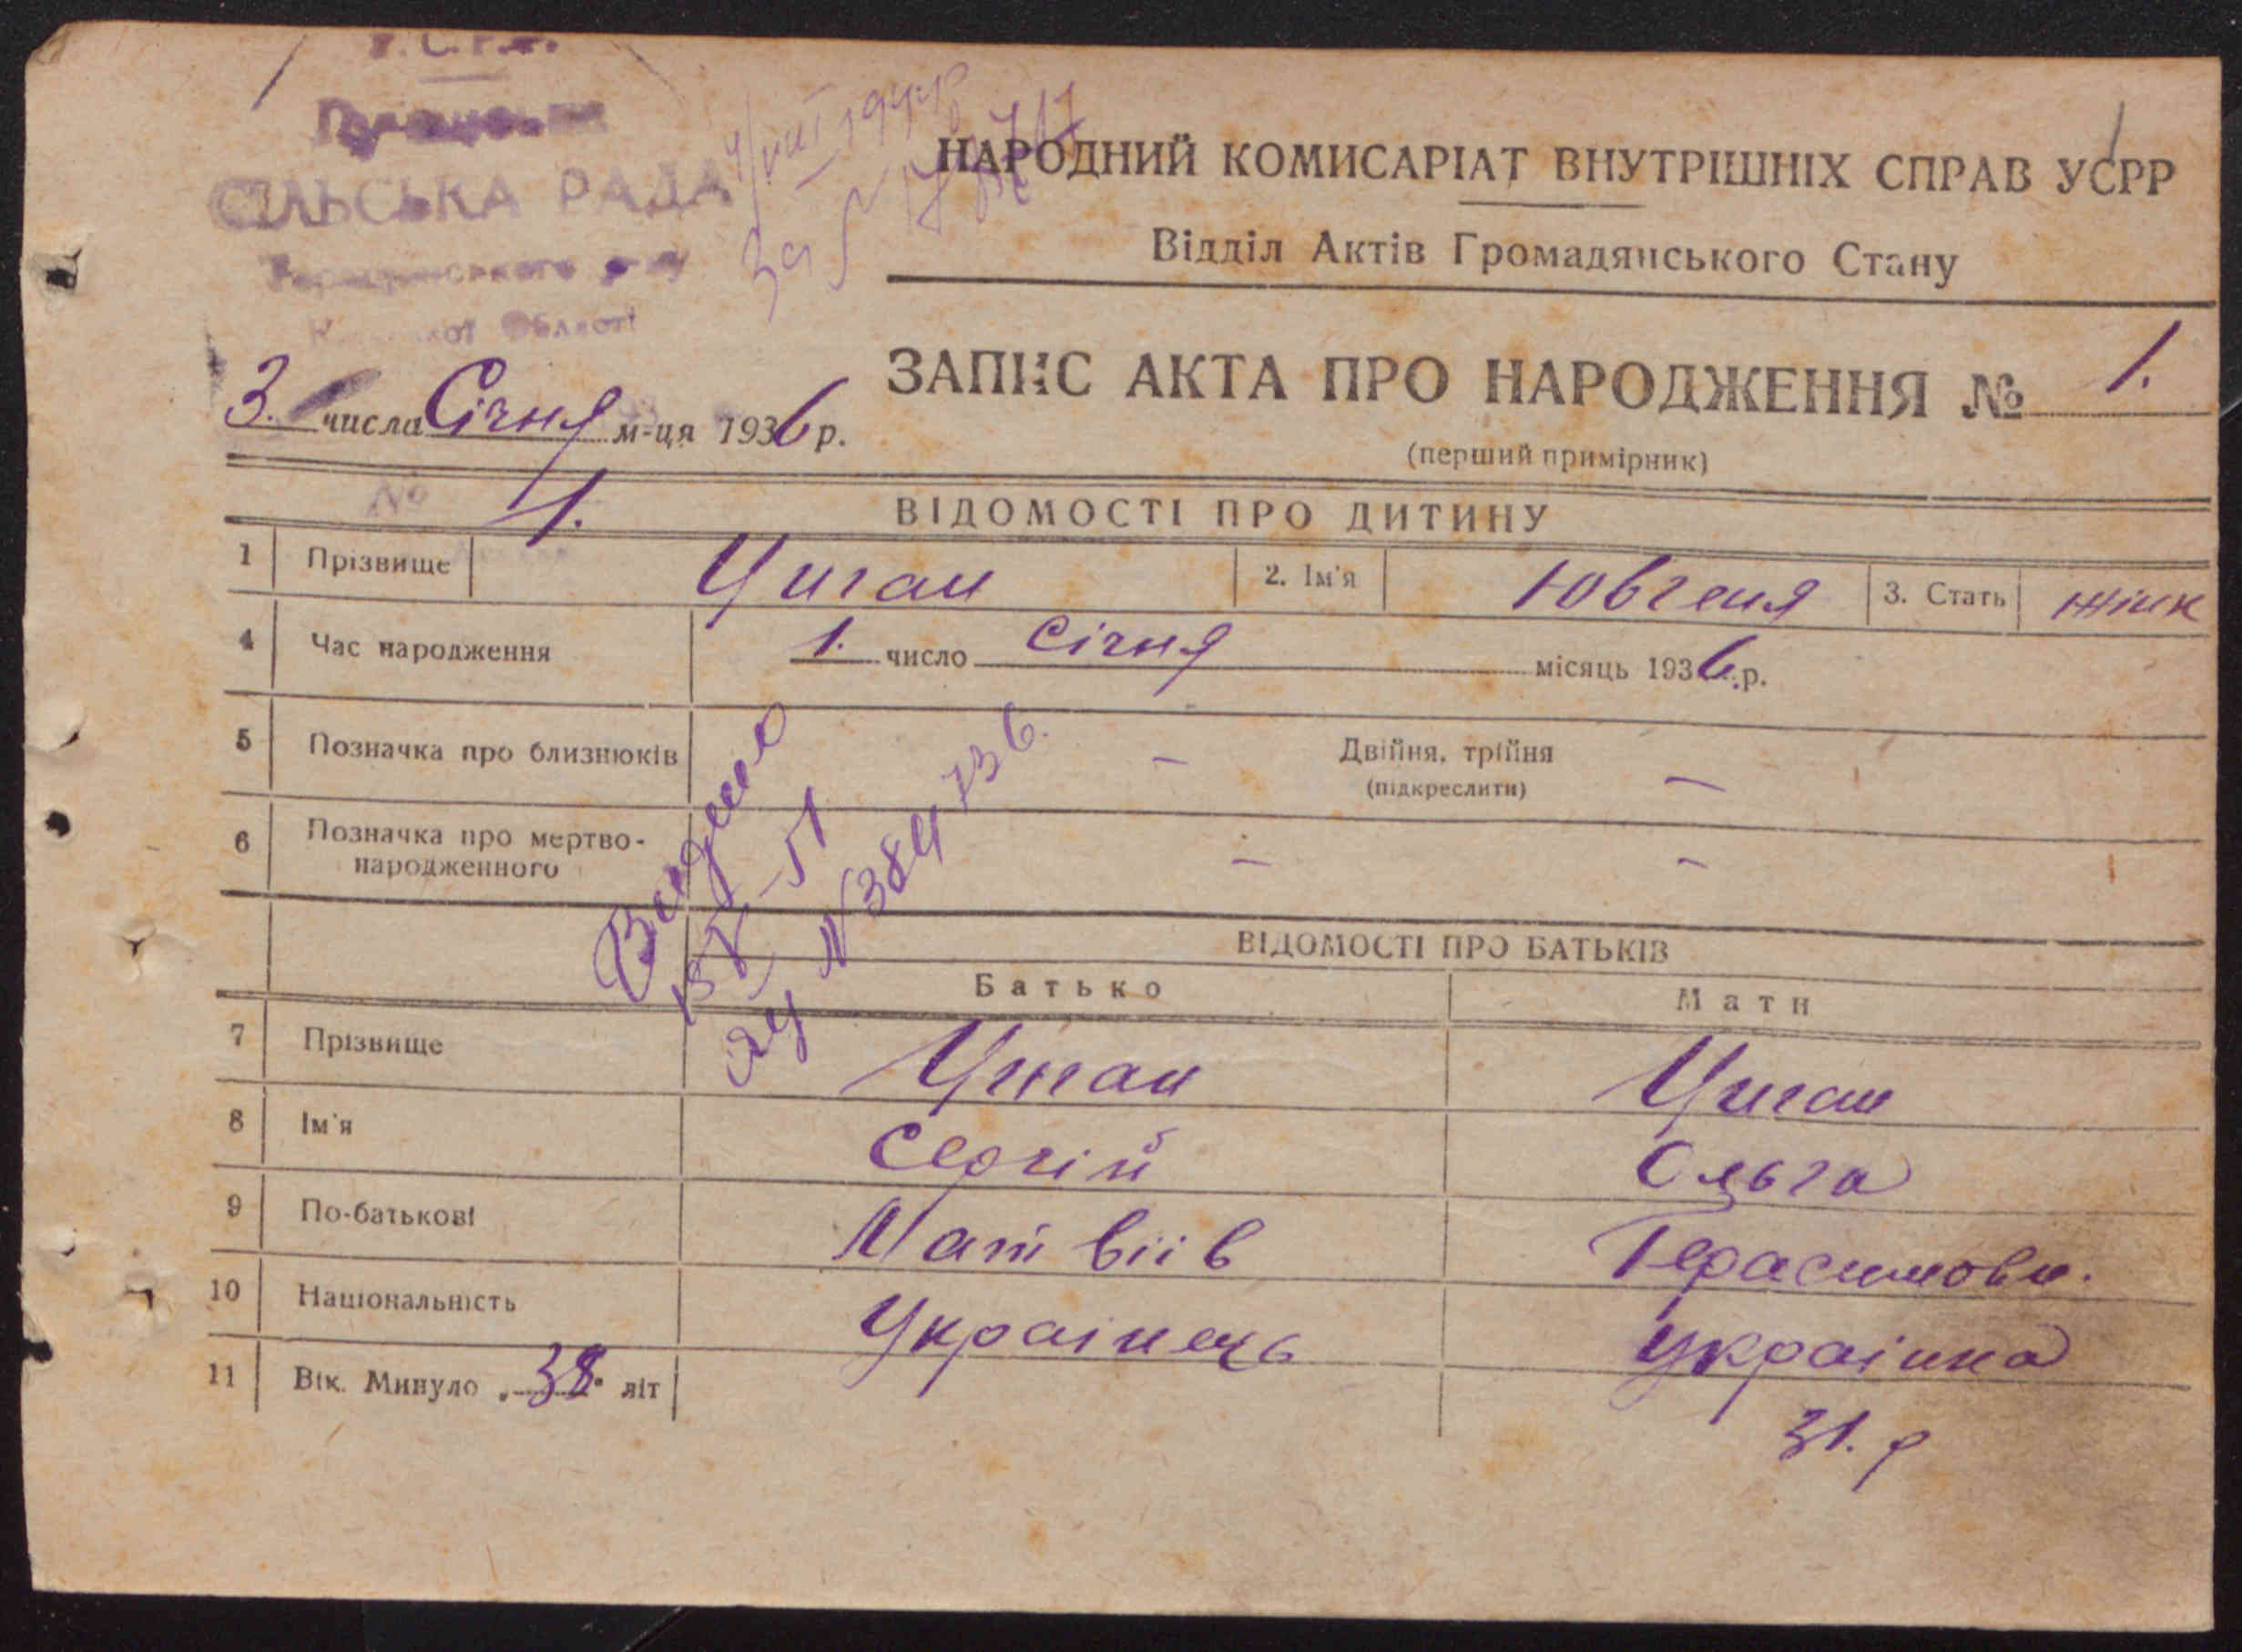 У.С.Р.Р.
СІЛЬСЬКА РАДА
Області
НАРОДНИЙ КОМИСАРІАТ ВНУТРІШНІХ СПРАВ УСРР
Відділ Актів Громадянського Стану
ЗАПИС АКТА ПРО НАРОДЖЕННЯ № 1.
(перший примірник)
3. числа Січня м-ця 1936 р.
№ 1.
ВІДОМОСТІ ПРО ДИТИНУ
1 Прізвище Циган 2. Ім'я Ювгеня 3. Стать жінк
4 Час народження 1. число Січня місяць 1936. р.
5 Позначка про близнюків — Двійня, трійня —
(підкреслити)
6 Позначка про мертво- — —
народженного
ВІДОМОСТІ ПРО БАТЬКІВ
Батько Мати
7 Прізвище Циган Циган
8 Ім'я Сергій Ольга
9 По-батькові Матвіїв Герасимовн.
10 Національність Українець Українка
11 Вік. Минуло „38" літ 31. р